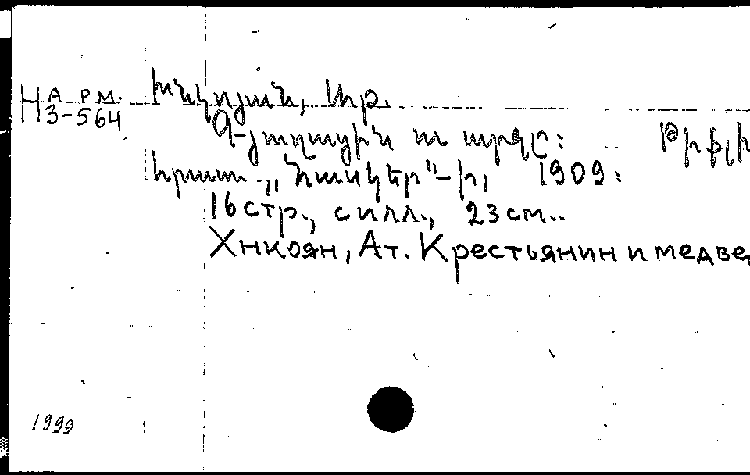 А РМ.
H 3-564
Խնկոյան, Աթ.
Գ-յուղացին ու արջը: Թիֆլի
հրատ. „Հասկեր"-ի, 1909:
16стр., с илл., 23см..
Хнкоян, Ат. Крестьянин и медве
1999